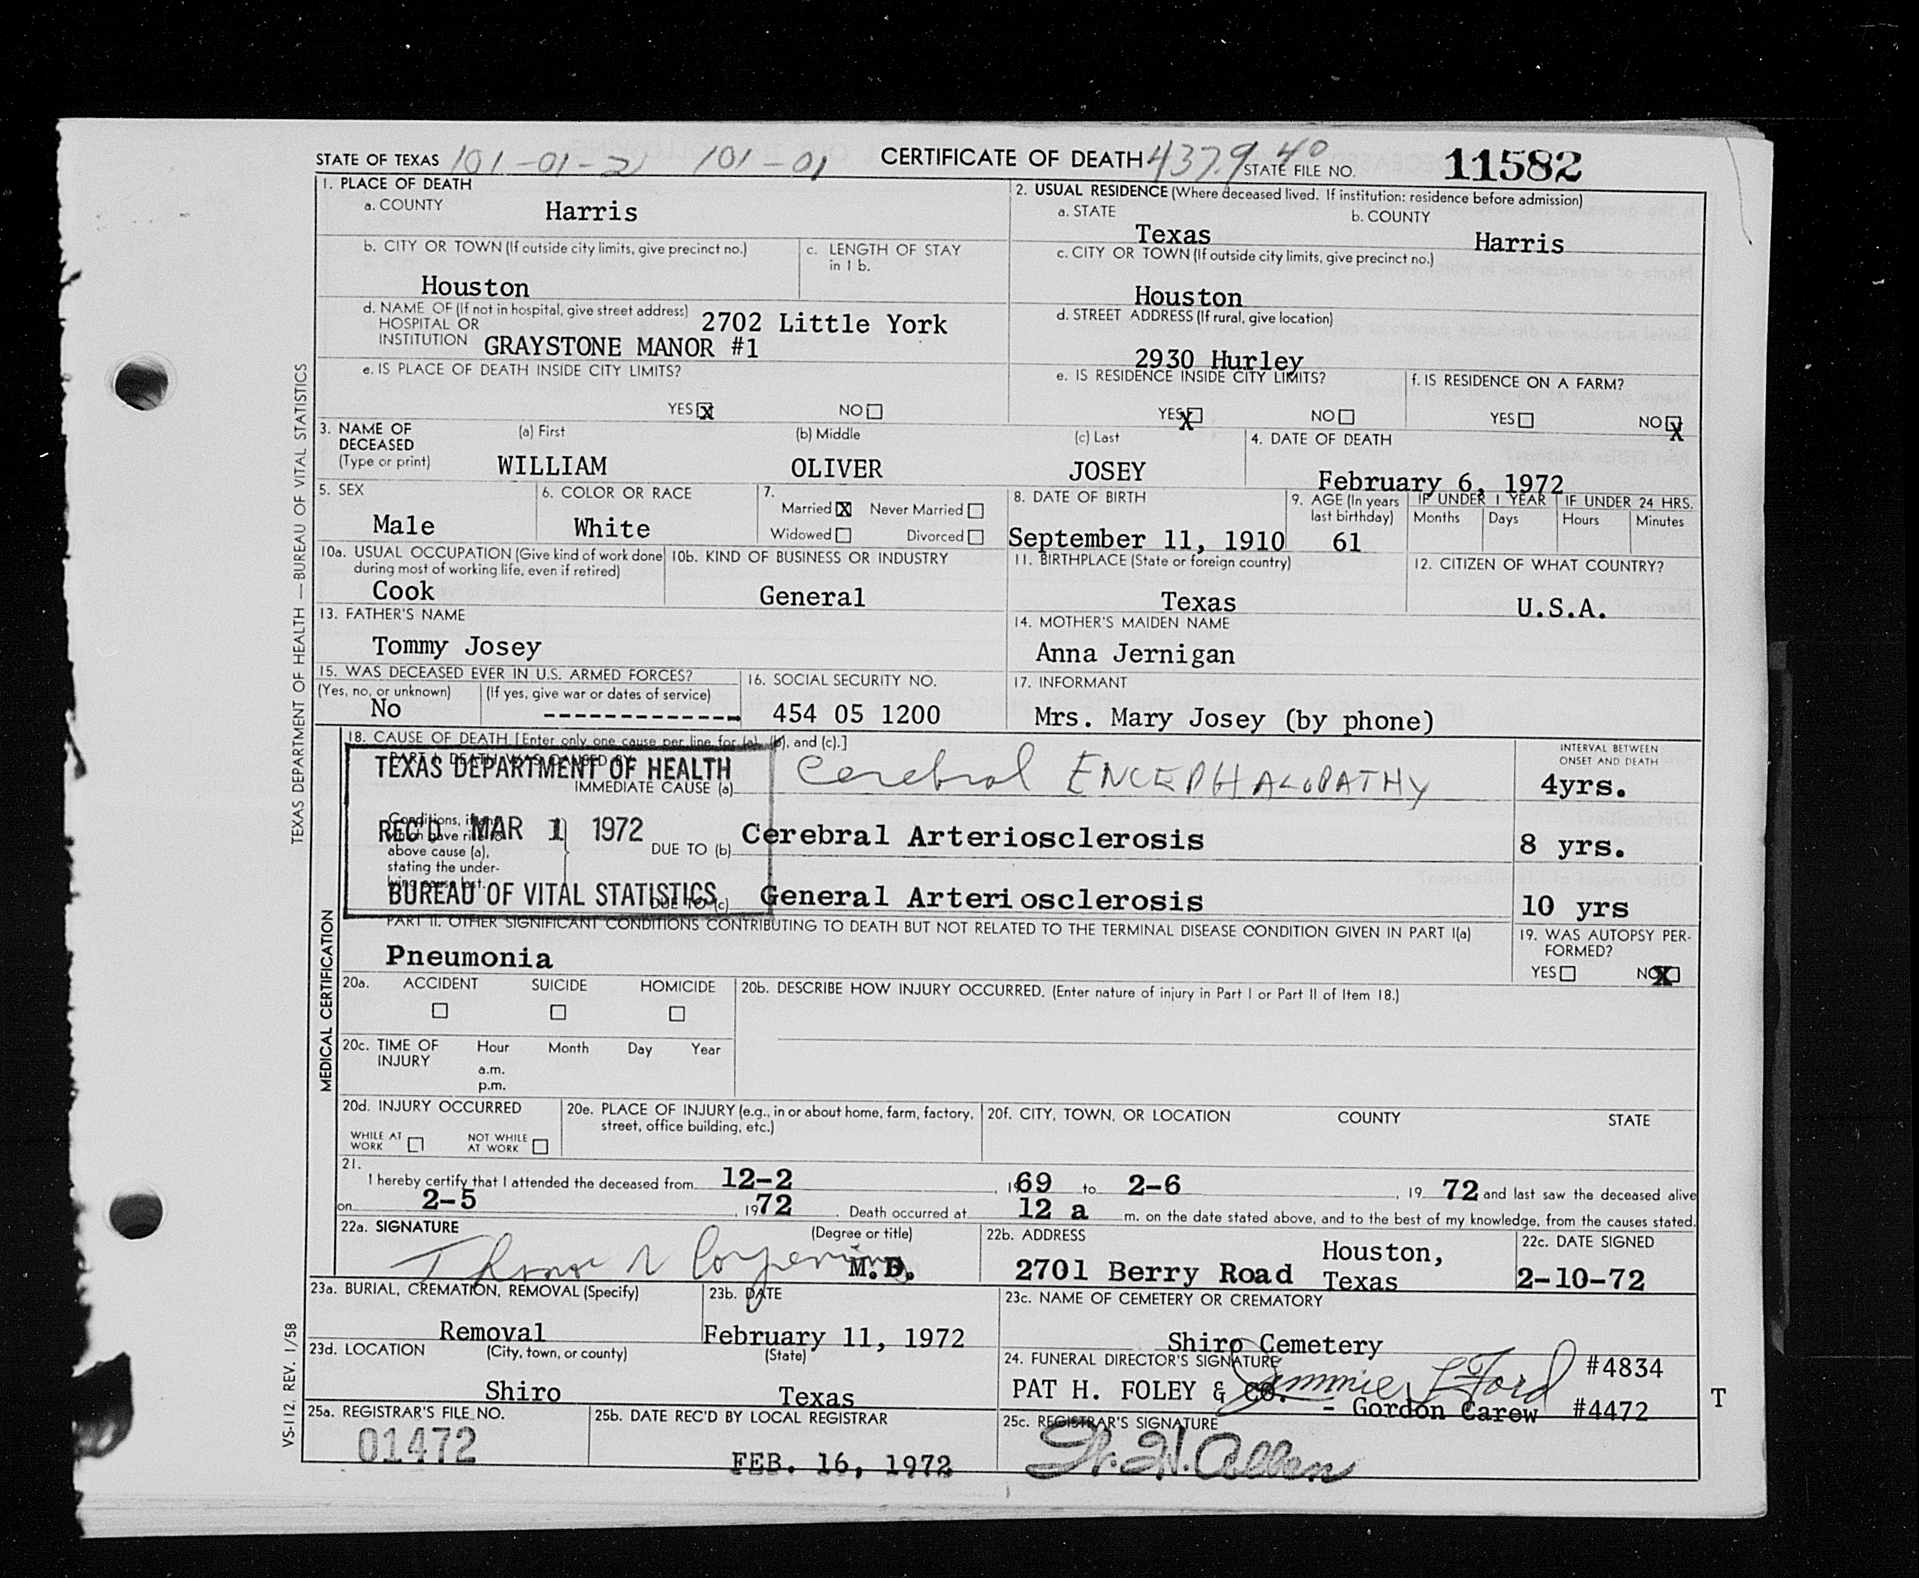 STATE OF TEXAS 101-01-21 101-01 CERTIFICATE OF DEATH 4379 40 STATE FILE NO. 11582
1. PLACE OF DEATH
a. COUNTY Harris
2. USUAL RESIDENCE (Where deceased lived. If institution: residence before admission)
a. STATE Texas b. COUNTY Harris
b. CITY OR TOWN (If outside city limits, give precinct no.) Houston
c. LENGTH OF STAY in 1 b.
c. CITY OR TOWN (If outside city limits, give precinct no.)
Houston
d. NAME OF (If not in hospital, give street address) 2702 Little York
HOSPITAL OR
INSTITUTION GRAYSTONE MANOR #1
d. STREET ADDRESS (If rural, give location)
2930 Hurley
e. IS PLACE OF DEATH INSIDE CITY LIMITS?
YES X NO
e. IS RESIDENCE INSIDE CITY LIMITS?
YES X NO
f. IS RESIDENCE ON A FARM?
YES NO X
3. NAME OF DECEASED (Type or print)
(a) First (b) Middle (c) Last
WILLIAM OLIVER JOSEY
4. DATE OF DEATH
February 6, 1972
5. SEX
Male
6. COLOR OR RACE
White
7.
Married X Never Married
Widowed Divorced
8. DATE OF BIRTH
September 11, 1910
9. AGE (In years last birthday)
61
IF UNDER 1 YEAR
Months Days
IF UNDER 24 HRS.
Hours Minutes
10a. USUAL OCCUPATION (Give kind of work done during most of working life, even if retired)
Cook
10b. KIND OF BUSINESS OR INDUSTRY
General
11. BIRTHPLACE (State or foreign country)
Texas
12. CITIZEN OF WHAT COUNTRY?
U.S.A.
13. FATHER'S NAME
Tommy Josey
14. MOTHER'S MAIDEN NAME
Anna Jernigan
15. WAS DECEASED EVER IN U.S. ARMED FORCES?
(Yes, no, or unknown) (If yes, give war or dates of service)
No -------------
16. SOCIAL SECURITY NO.
454 05 1200
17. INFORMANT
Mrs. Mary Josey (by phone)
18. CAUSE OF DEATH [Enter only one cause per line for (a), (b), and (c).]
PART I. DEATH WAS CAUSED BY:
TEXAS DEPARTMENT OF HEALTH
IMMEDIATE CAUSE (a) Cerebral ENCEPHALOPATHY
INTERVAL BETWEEN ONSET AND DEATH
4yrs.
REC'D MAR 1 1972
Conditions, if any,
which gave rise to
above cause (a),
stating the under-
lying cause last.
DUE TO (b) Cerebral Arteriosclerosis 8 yrs.
BUREAU OF VITAL STATISTICS
DUE TO (c) General Arteriosclerosis 10 yrs
PART II. OTHER SIGNIFICANT CONDITIONS CONTRIBUTING TO DEATH BUT NOT RELATED TO THE TERMINAL DISEASE CONDITION GIVEN IN PART I(a)
Pneumonia
19. WAS AUTOPSY PERFORMED?
YES NO X
20a. ACCIDENT SUICIDE HOMICIDE
20b. DESCRIBE HOW INJURY OCCURRED. (Enter nature of injury in Part I or Part II of Item 18.)
20c. TIME OF INJURY Hour Month Day Year
a.m.
p.m.
20d. INJURY OCCURRED
WHILE AT WORK NOT WHILE AT WORK
20e. PLACE OF INJURY (e.g., in or about home, farm, factory, street, office building, etc.)
20f. CITY, TOWN, OR LOCATION COUNTY STATE
21.
I hereby certify that I attended the deceased from 12-2, 1969 to 2-6, 1972 and last saw the deceased alive
on 2-5, 1972. Death occurred at 12 a m. on the date stated above, and to the best of my knowledge, from the causes stated.
22a. SIGNATURE (Degree or title)
M.D.
22b. ADDRESS
2701 Berry Road Houston, Texas
22c. DATE SIGNED
2-10-72
23a. BURIAL, CREMATION, REMOVAL (Specify)
Removal
23b. DATE
February 11, 1972
23c. NAME OF CEMETERY OR CREMATORY
Shiro Cemetery
23d. LOCATION (City, town, or county) (State)
Shiro Texas
24. FUNERAL DIRECTOR'S SIGNATURE
PAT H. FOLEY & CO. Jimmie L Ford #4834
- Gordon Carew #4472
25a. REGISTRAR'S FILE NO.
01472
25b. DATE REC'D BY LOCAL REGISTRAR
FEB. 16, 1972
25c. REGISTRAR'S SIGNATURE
W. H. Allen
T
TEXAS DEPARTMENT OF HEALTH — BUREAU OF VITAL STATISTICS
MEDICAL CERTIFICATION
VS-112, REV. 1/58